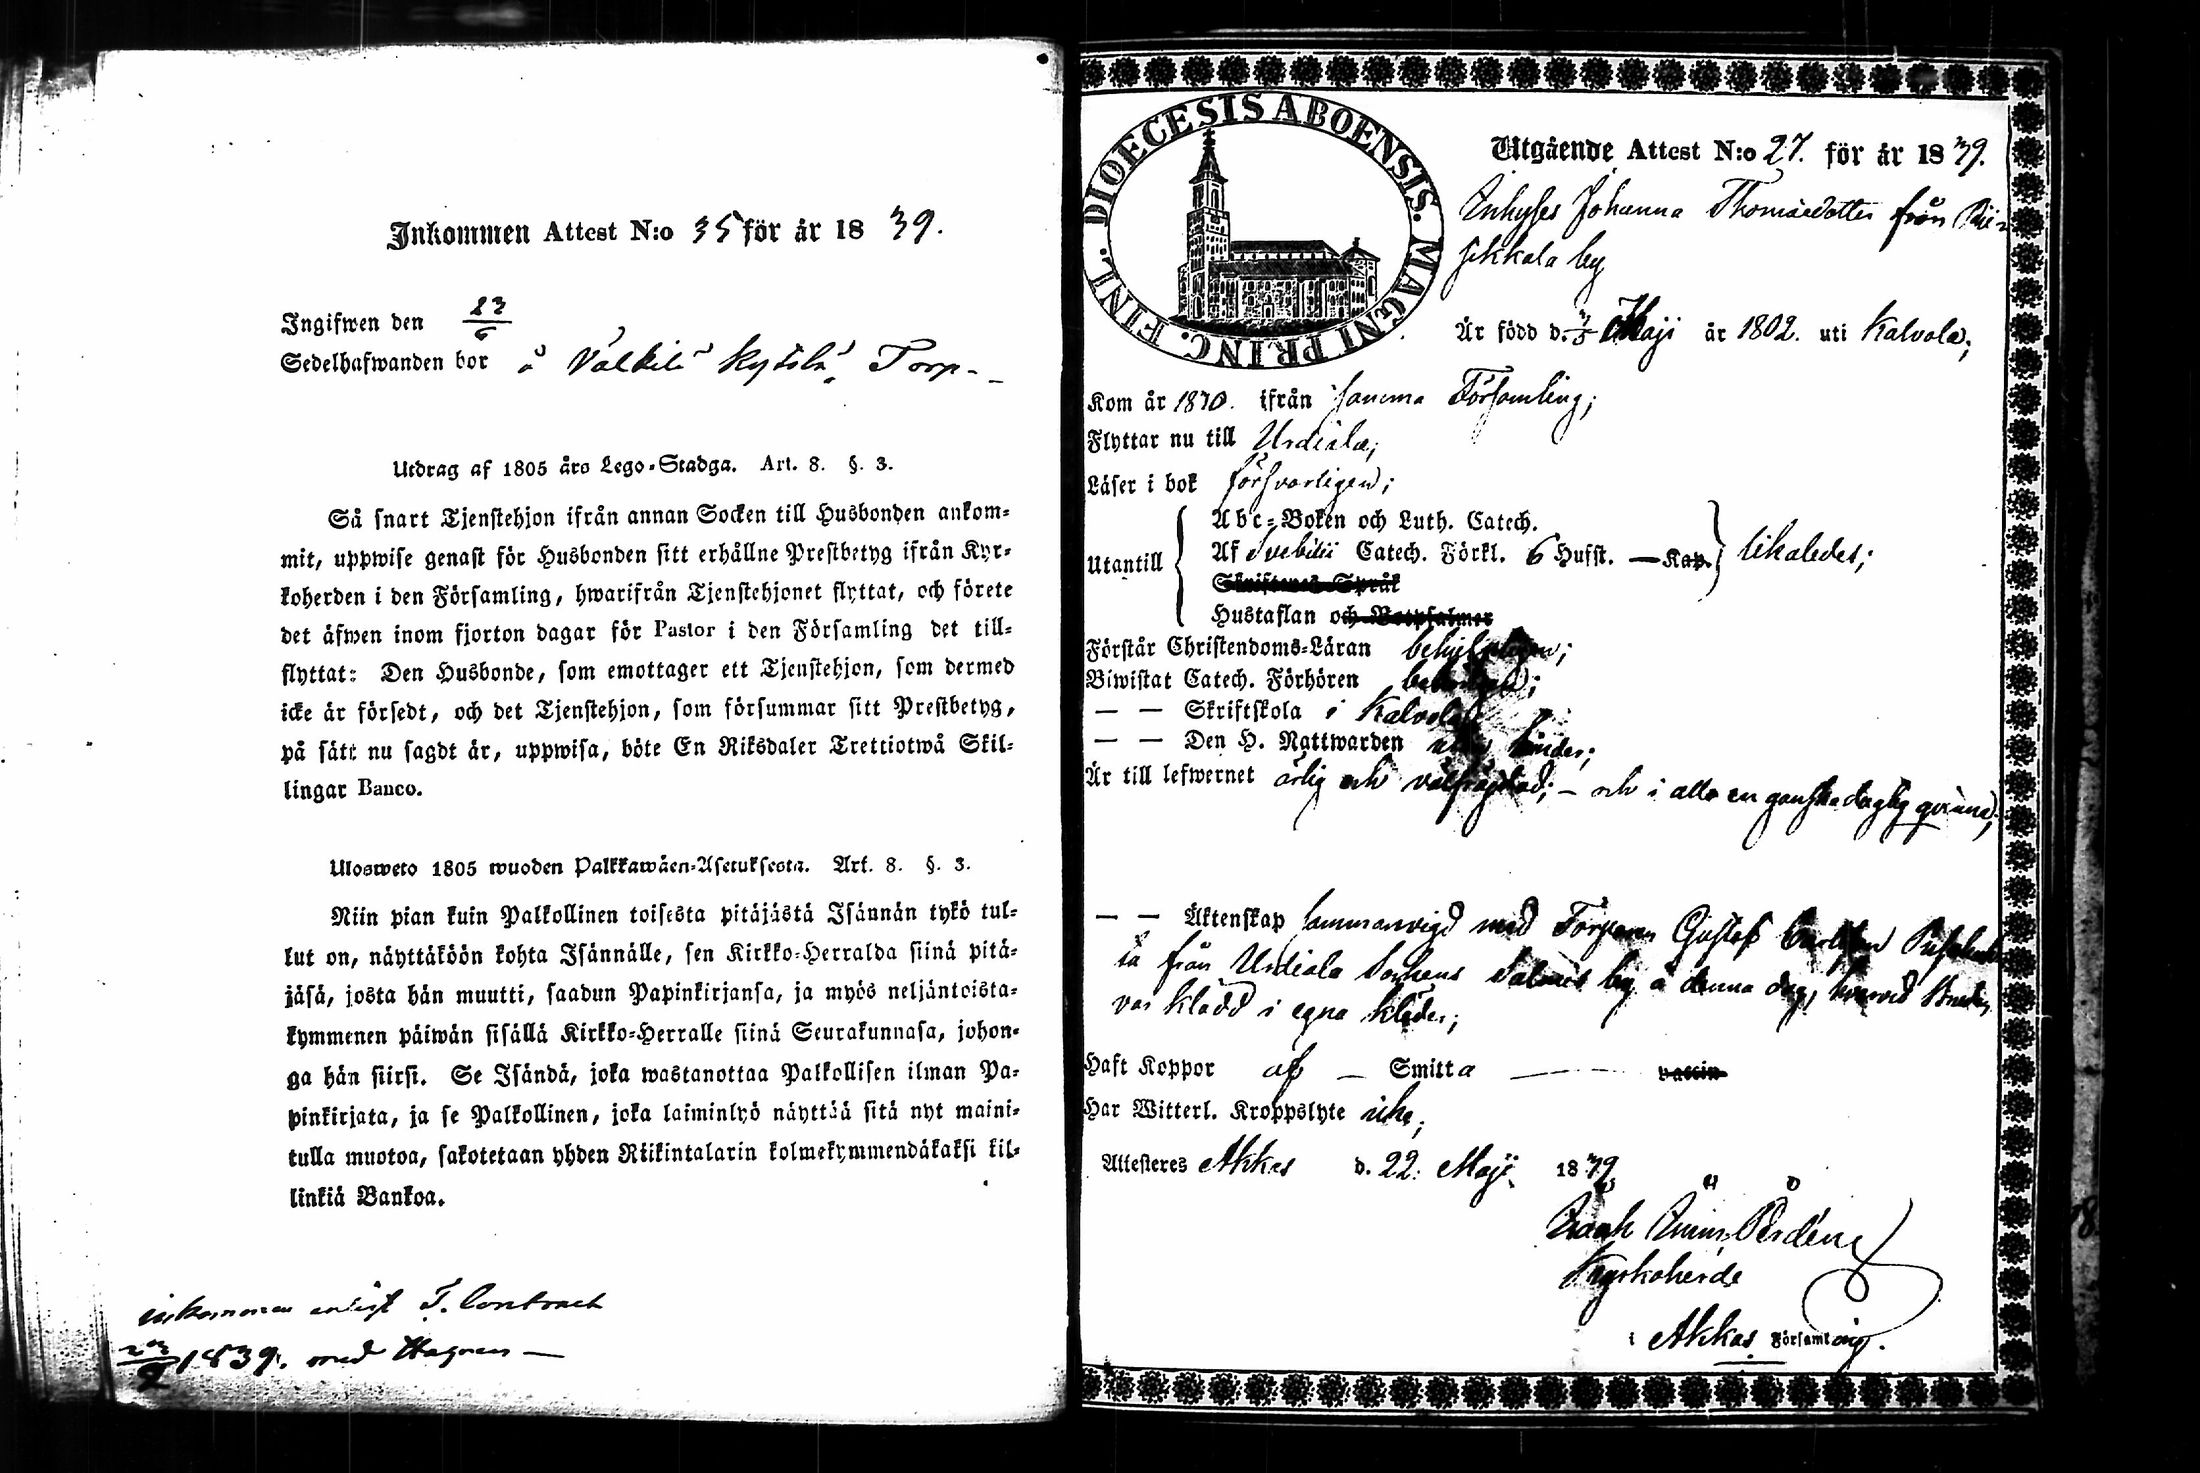 Inkommen Attest N:o 35 för år 1839.
Ingifwen den 23/6
Sedelhafwanden bor å Torp
Utdrag af 1805 års Lego-Stadga. Art. 8. §. 3.
Så snart Tjenstehjon ifrån annan Socken till Husbonden ankom-
mit, uppwise genast för Husbonden sitt erhållne Prestbetyg ifrån Kyr-
koherden i den Församling, hwarifrån Tjenstehjonet flyttat, och förete
det äfwen inom fjorton dagar för Pastor i den Församling det till-
flyttat: Den Husbonde, som emottager ett Tjenstehjon, som dermed
icke är försedt, och det Tjenstehjon, som försummar sitt Prestbetyg,
på sätt nu sagdt är, uppwisa, böte En Riksdaler Trettiotwå Skil-
lingar Banco.
Ulosweto 1805 wuoden Palkkawäen-Asetuksesta. Art. 8. §. 3.
Niin pian kuin Palkollinen toisesta pitäjästä Isännän tykö tul-
lut on, näyttäköön kohta Isännälle, sen Kirkko-Herralda siinä pitä-
jäsä, josta hän muutti, saadun Papinkirjansa, ja myös neljäntoista-
kymmenen päiwän sisällä Kirkko-Herralle siinä Seurakunnasa, johon-
ga hän siirsi. Se Isändä, joka wastanottaa Palkollisen ilman Pa-
pinkirjata, ja se Palkollinen, joka laiminlyö näyttää sitä nyt maini-
tulla muotoa, sakotetaan yhden Riikintalarin kolmekymmendäkaksi kil-
linkiä Bankoa.
inkommen enligt T. Contract
1839. med
DIOECESIS ABOENSIS. MAGNI PRINC. FINL.
Utgående Attest N:o 27. för år 1839.
Inhyses Johanna Thomasdotter från
by
Är född d. 3/5 Maji år 1802. uti Kalvola;
Kom år 1830. ifrån samma Församling;
Flyttar nu till Urdiala;
Läser i bok försvarligen;
Utantill
Abc-Boken och Luth. Catech.
Af Svebilii Catech. Förkl. 6 Hufst. — Kap. likaledes;
Skriftenes Språk
Hustaflan och Botpsalmer
Förstår Christendoms-Läran behjelpligen;
Biwistat Catech. Förhören
— — Skriftskola i Kalvola
— — Den H. Nattwarden
Är till lefwernet ärlig och välfrägdad; – och i allo en ganska duglig qvinna;
— — Äktenskap sammanvigd med Torparen Gustaf Carlsson
från Urdiala Sockens by å denna dag, hvarvid Bruden
var klädd i egna kläder;
Haft Koppor af — Smitta — vaccin
Har Witterl. Kroppslyte icke;
Attesteres Akkas d. 22. Maji 1839.
Kyrkoherde
i Akkas Församling.